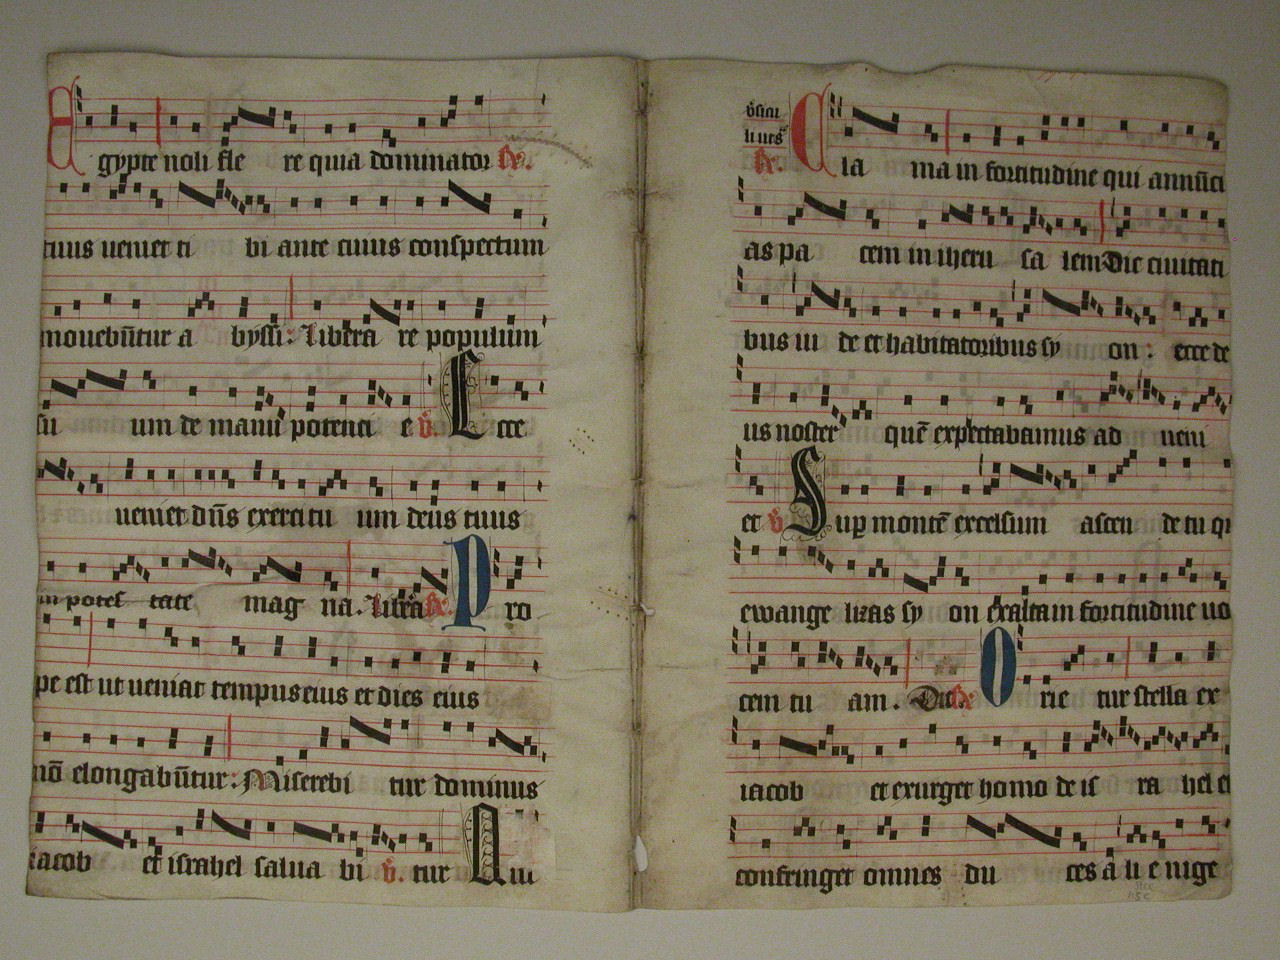 Egypte noli fle re quia dominator ℟.
tuus ueniet ti bi ante cuius conspectum
mouebūtur a byssi: Libera re populum
su um de manu potenti e ℣. Ecce
ueniet dn̄s exercitu um deus tuus
in potest tate mag na. Libera ℟. Pro
pe est ut ueniat tempus eius et dies eius
nō elongabūtur: Miserebi tur dominus
iacob et israhel salua bi ℣. tur Qui
℟. Cla ma in fortitudine qui annūci
as pa cem in iheru sa lem Dic ciuitati
bus iu de et habitatoribus sy on: ecce de
us noster quē expectabamus ad ueni
et ℣. Sup montē excelsum ascen de tu qi
ewange lizas sy on exalta in fortitudine uo
cem tu am. Dic ℟. Orie tur stella ex
iacob et exurget homo de is ra hel et
confringet omnes du ces a li e nige